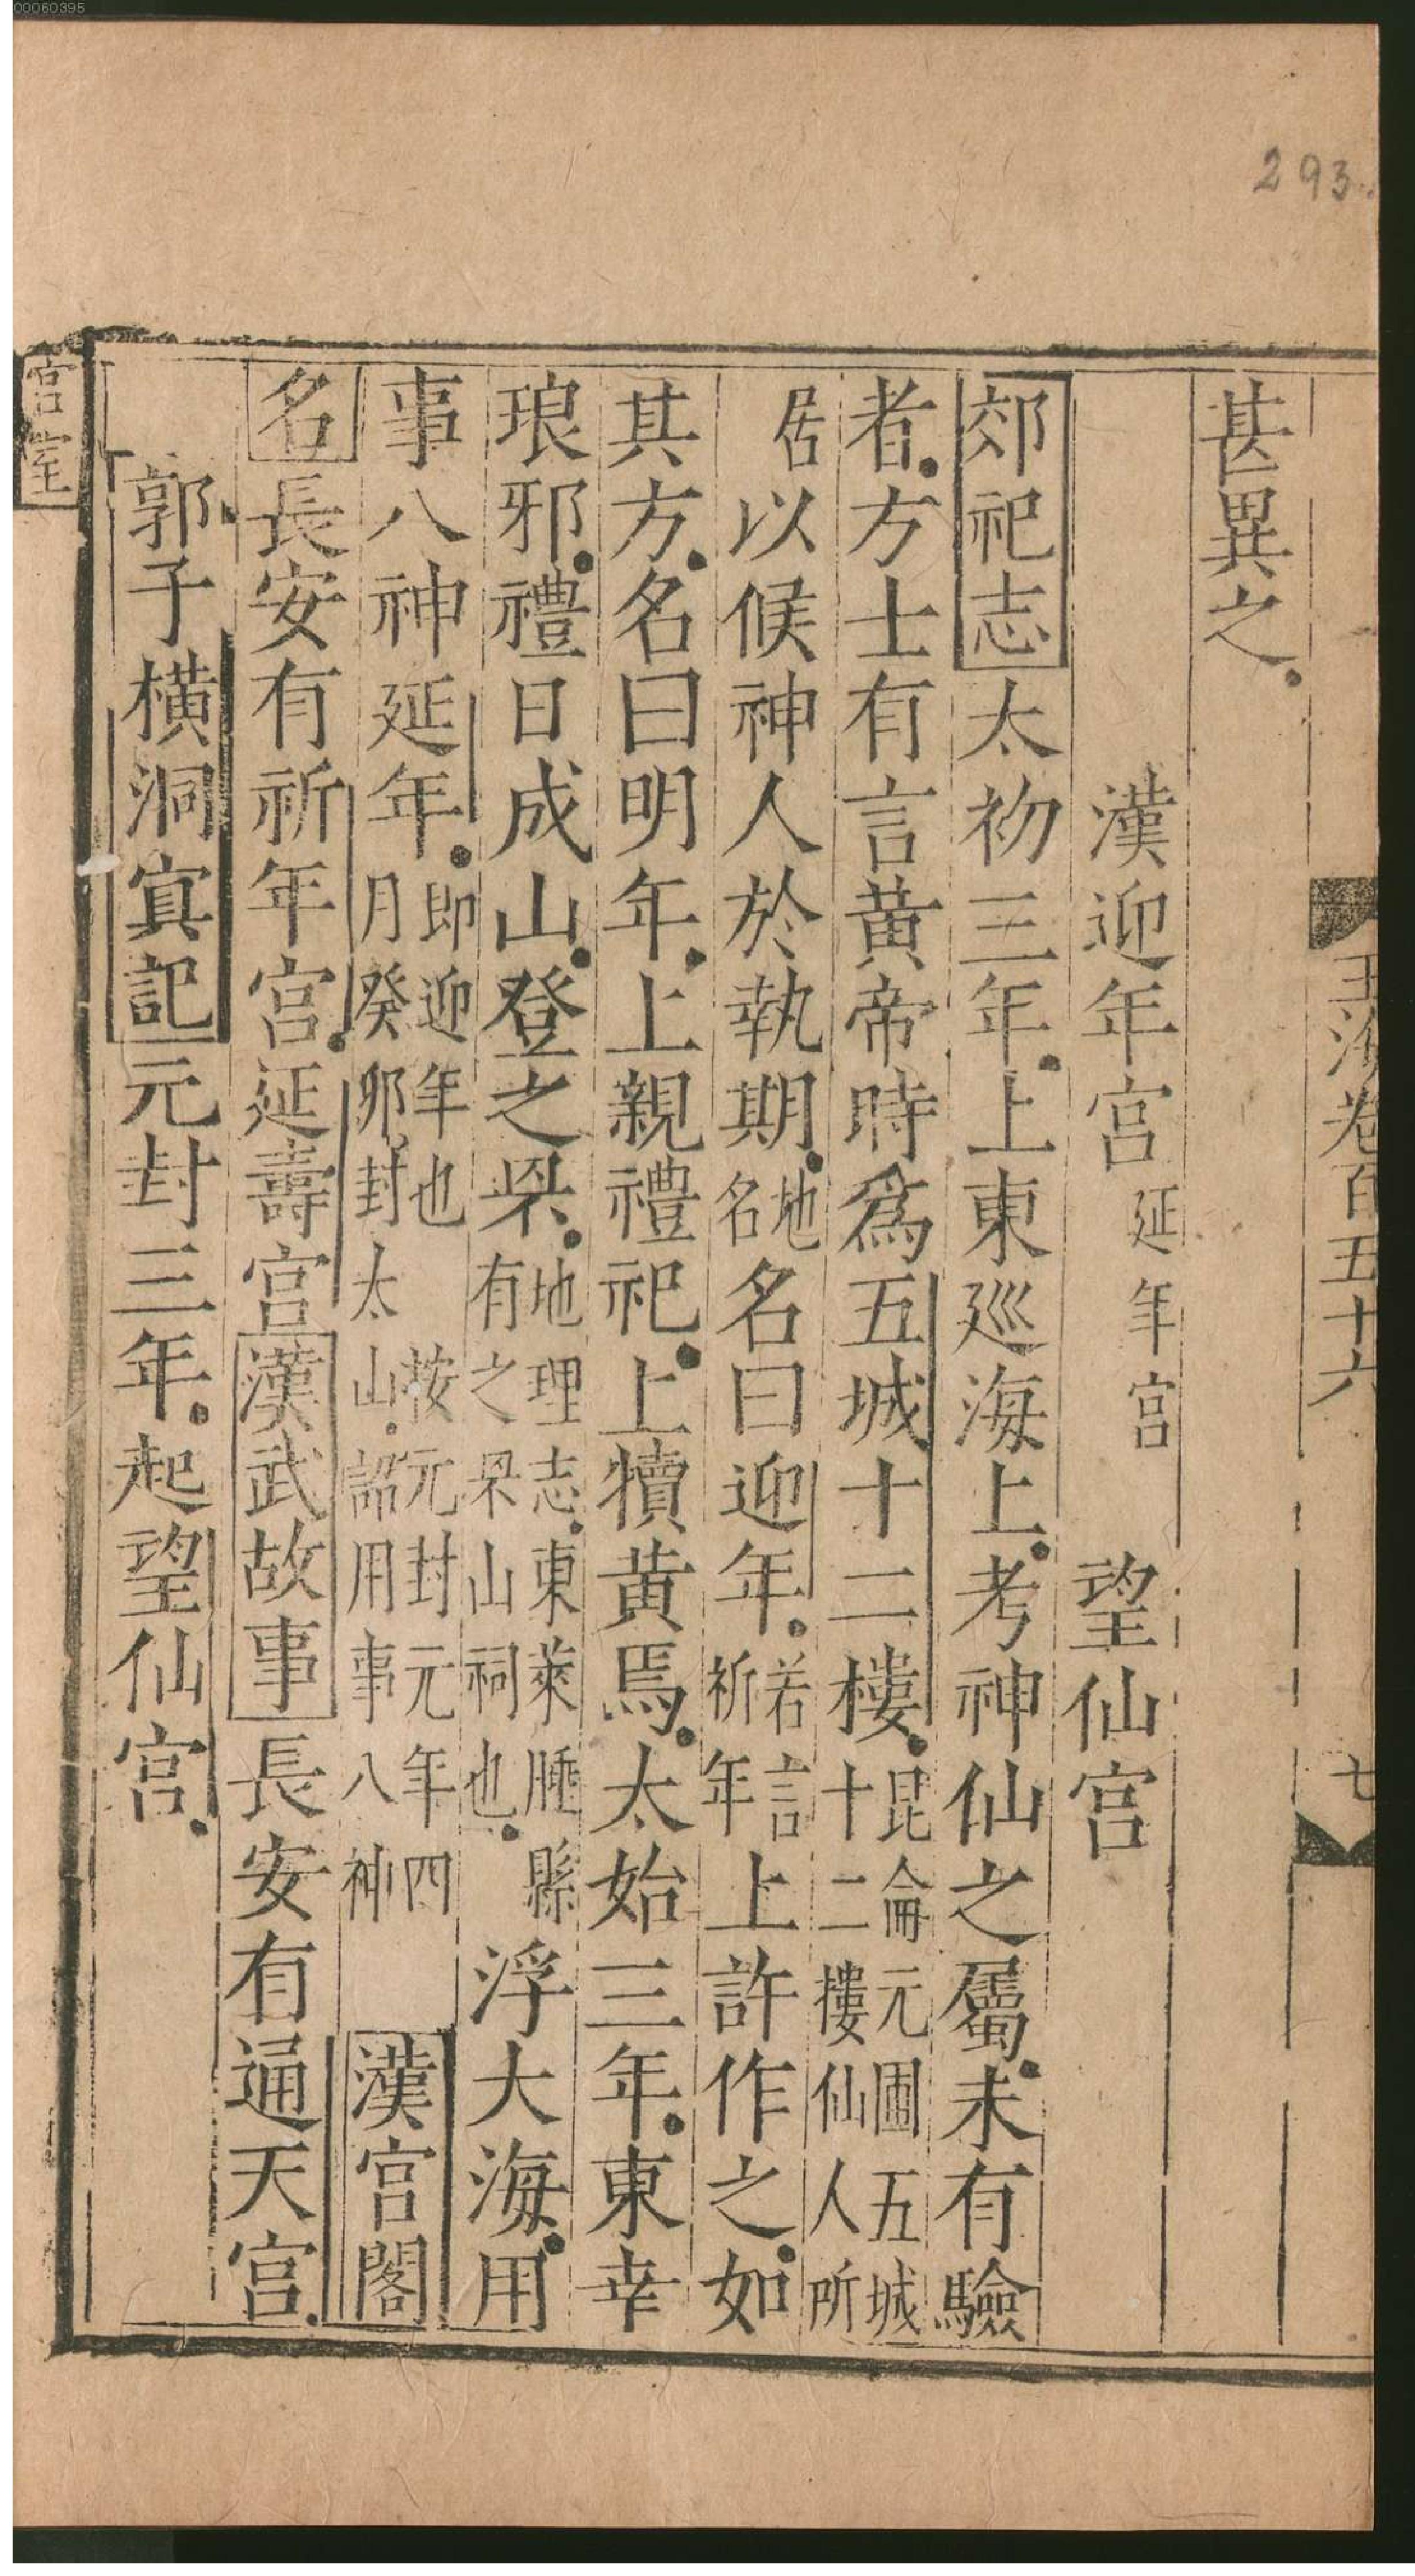 00060395
293
玉海卷百五十六
七
甚異之
漢迎年宮延年宮 望仙宮
郊祀志太初三年上東巡海上考神仙之屬未有驗
者方士有言黃帝時爲五城十二樓昆侖元圃五城十二樓仙人所
居以候神人於執期地名名曰迎年若言祈年上許作之如
其方名曰明年上親禮祀上犢黃焉太始三年東幸
琅邪禮日成山登之罘地理志東萊腄縣有之罘山祠也浮大海用
事八神延年即迎年也月癸卯封太山詔用事八神按元封元年四漢宮閣
名長安有祈年宮延壽宮漢武故事長安有通天宮
郭子橫洞冥記元封三年起望仙宮
宮室